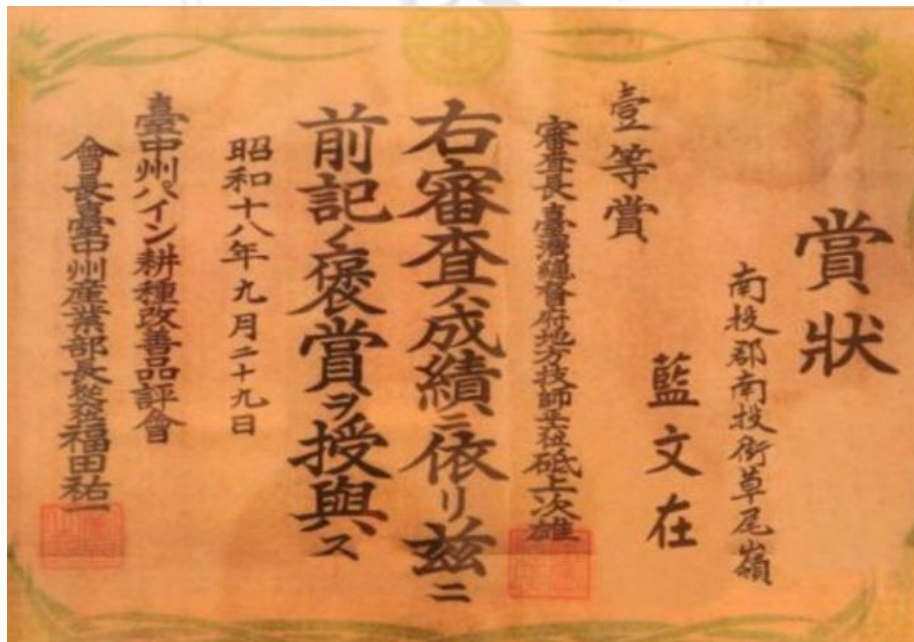 賞狀
南投郡南投街草尾嶺
藍文在
壹等賞
審查長臺灣總督府地方技師 砥上次雄
右審查ノ成績ニ依リ茲ニ
前記ノ褒賞ヲ授與ス
昭和十八年九月二十九日
臺中州パイン耕種改善品評會
會長臺中州產業部長 福田祐一